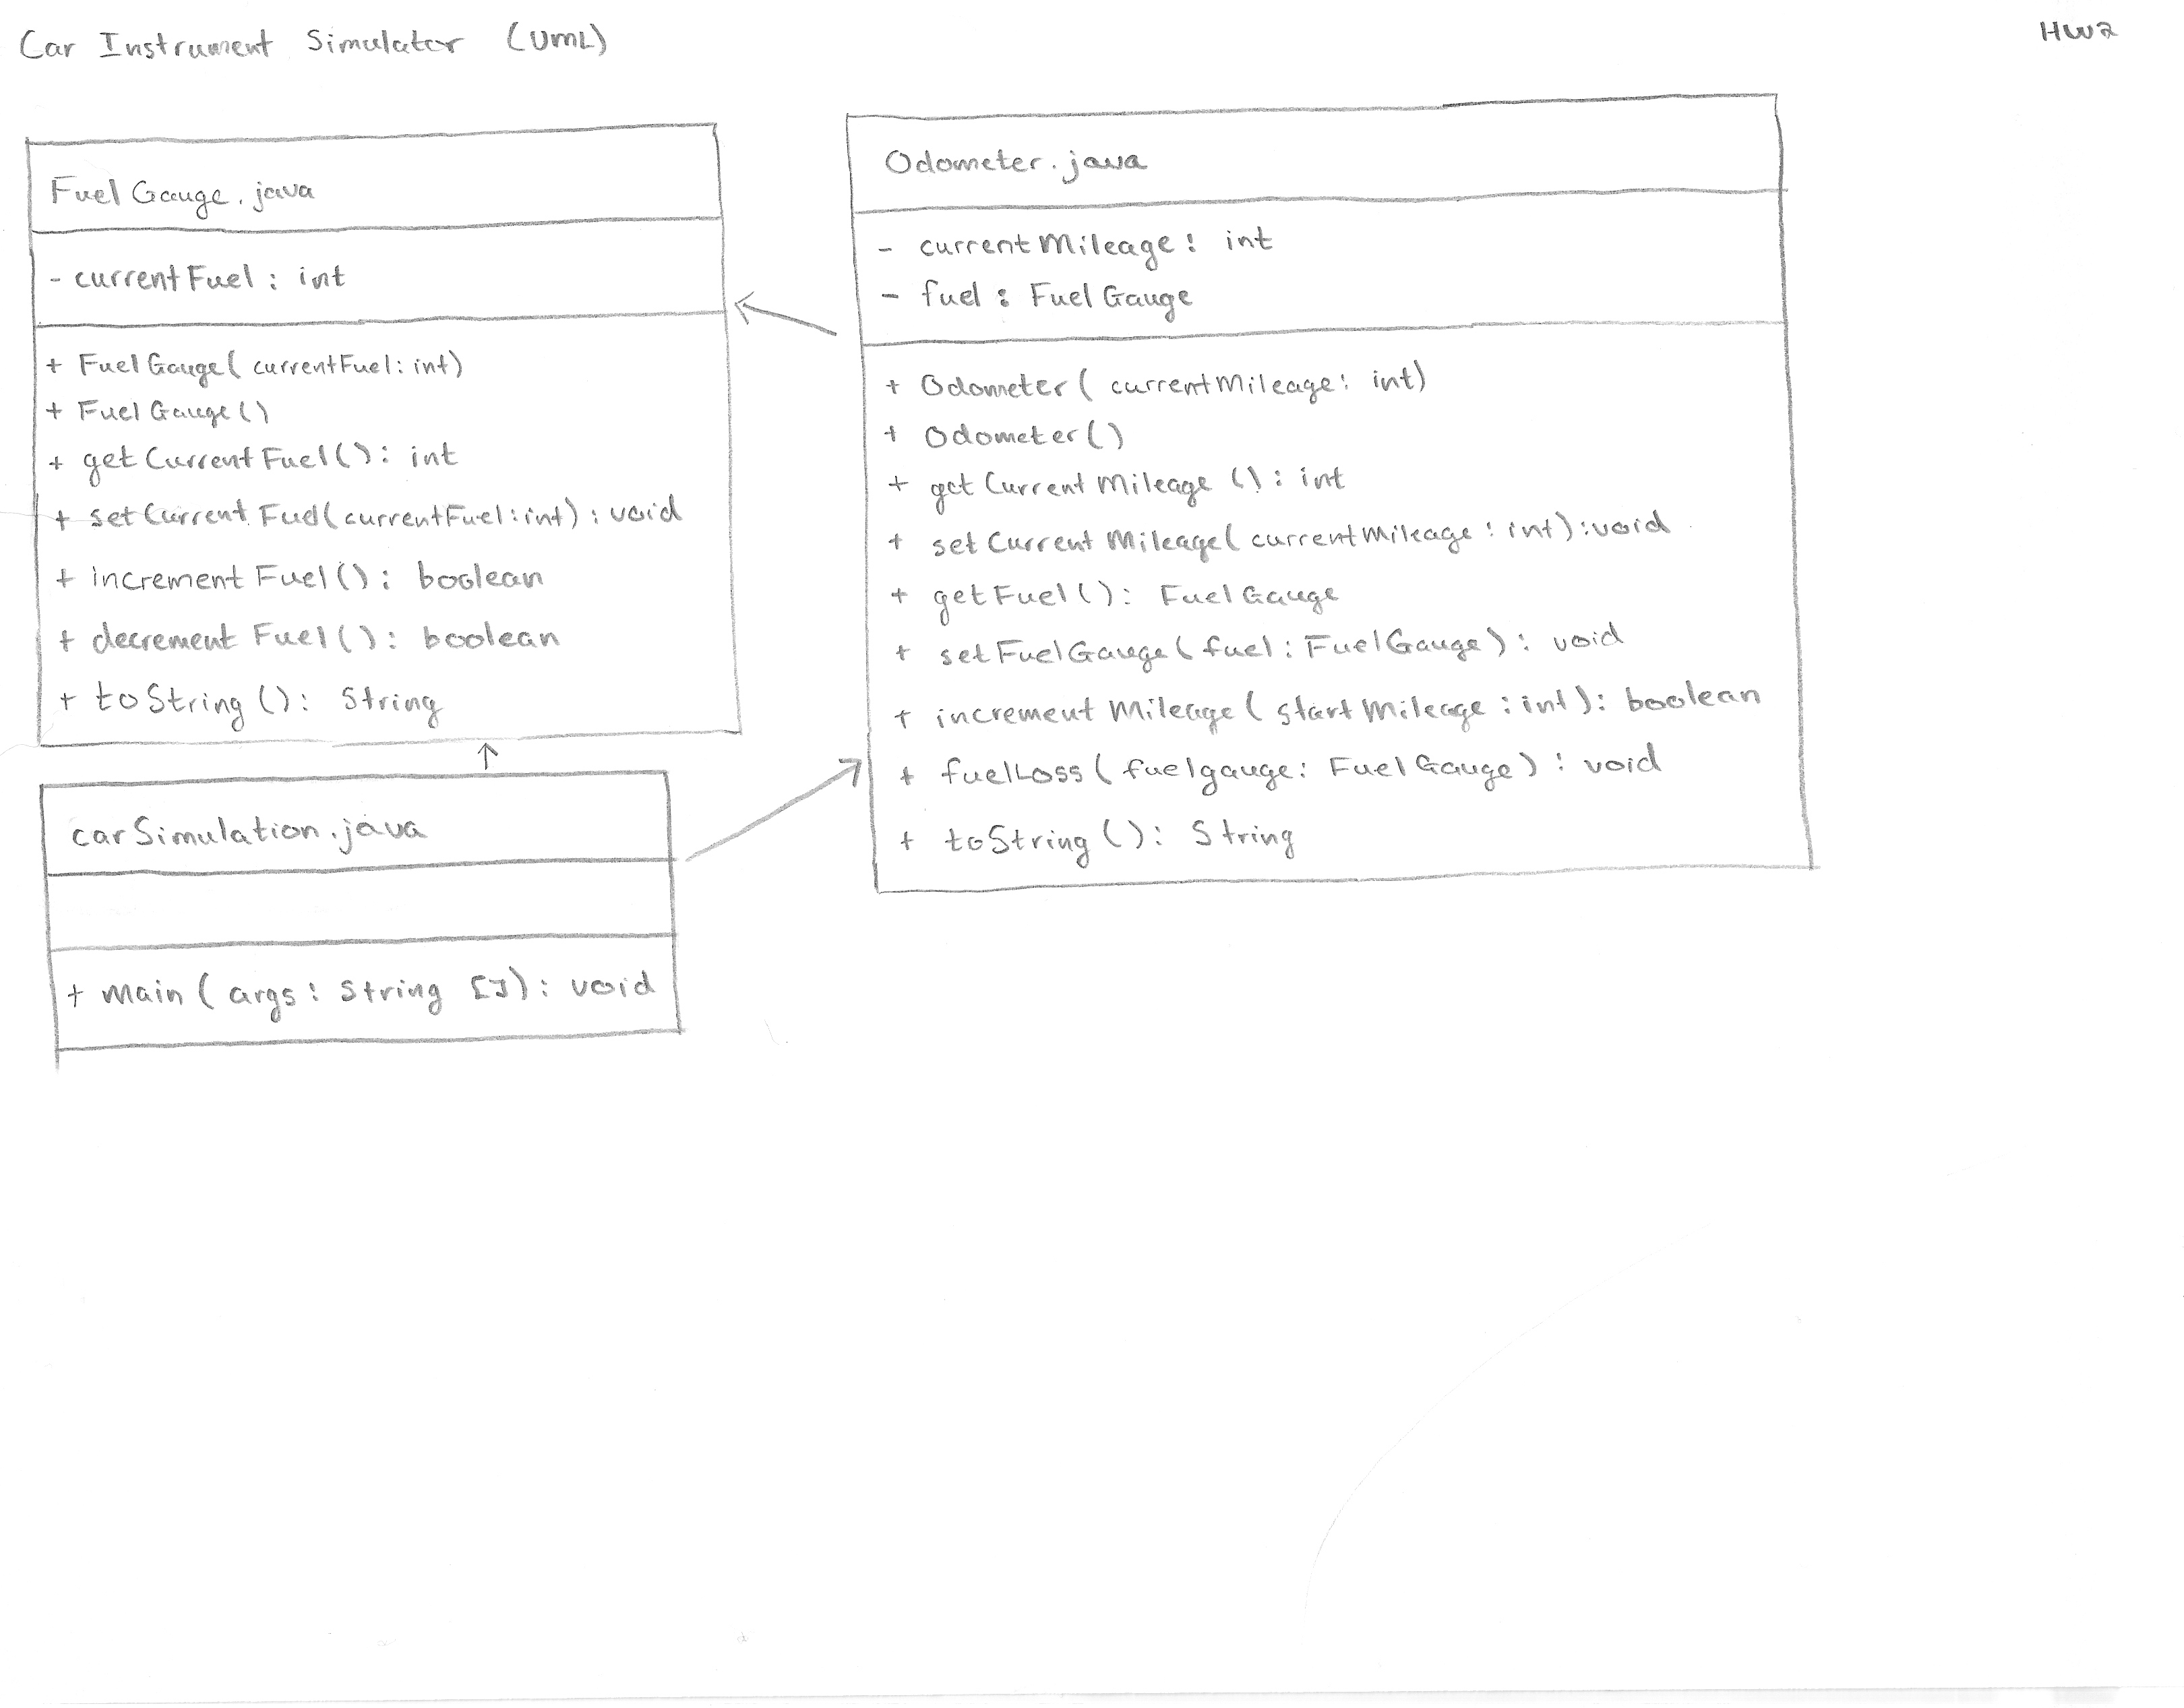 Car Instrument Simulator (UML)
HW2
FuelGauge.java
- currentFuel: int
+ FuelGauge(currentFuel: int)
+ FuelGauge()
+ getCurrentFuel(): int
+ setCurrentFuel(currentFuel: int): void
+ incrementFuel(): boolean
+ decrementFuel(): boolean
+ toString(): String
Odometer.java
- currentMileage: int
- fuel: FuelGauge
+ Odometer(currentMileage: int)
+ Odometer()
+ getCurrentMileage(): int
+ setCurrentMileage(currentMileage: int): void
+ getFuel(): FuelGauge
+ setFuelGauge(fuel: FuelGauge): void
+ incrementMileage(startMileage: int): boolean
+ fuelLoss(fuelgauge: FuelGauge): void
+ toString(): String
carSimulation.java
+ main(args: String[]): void